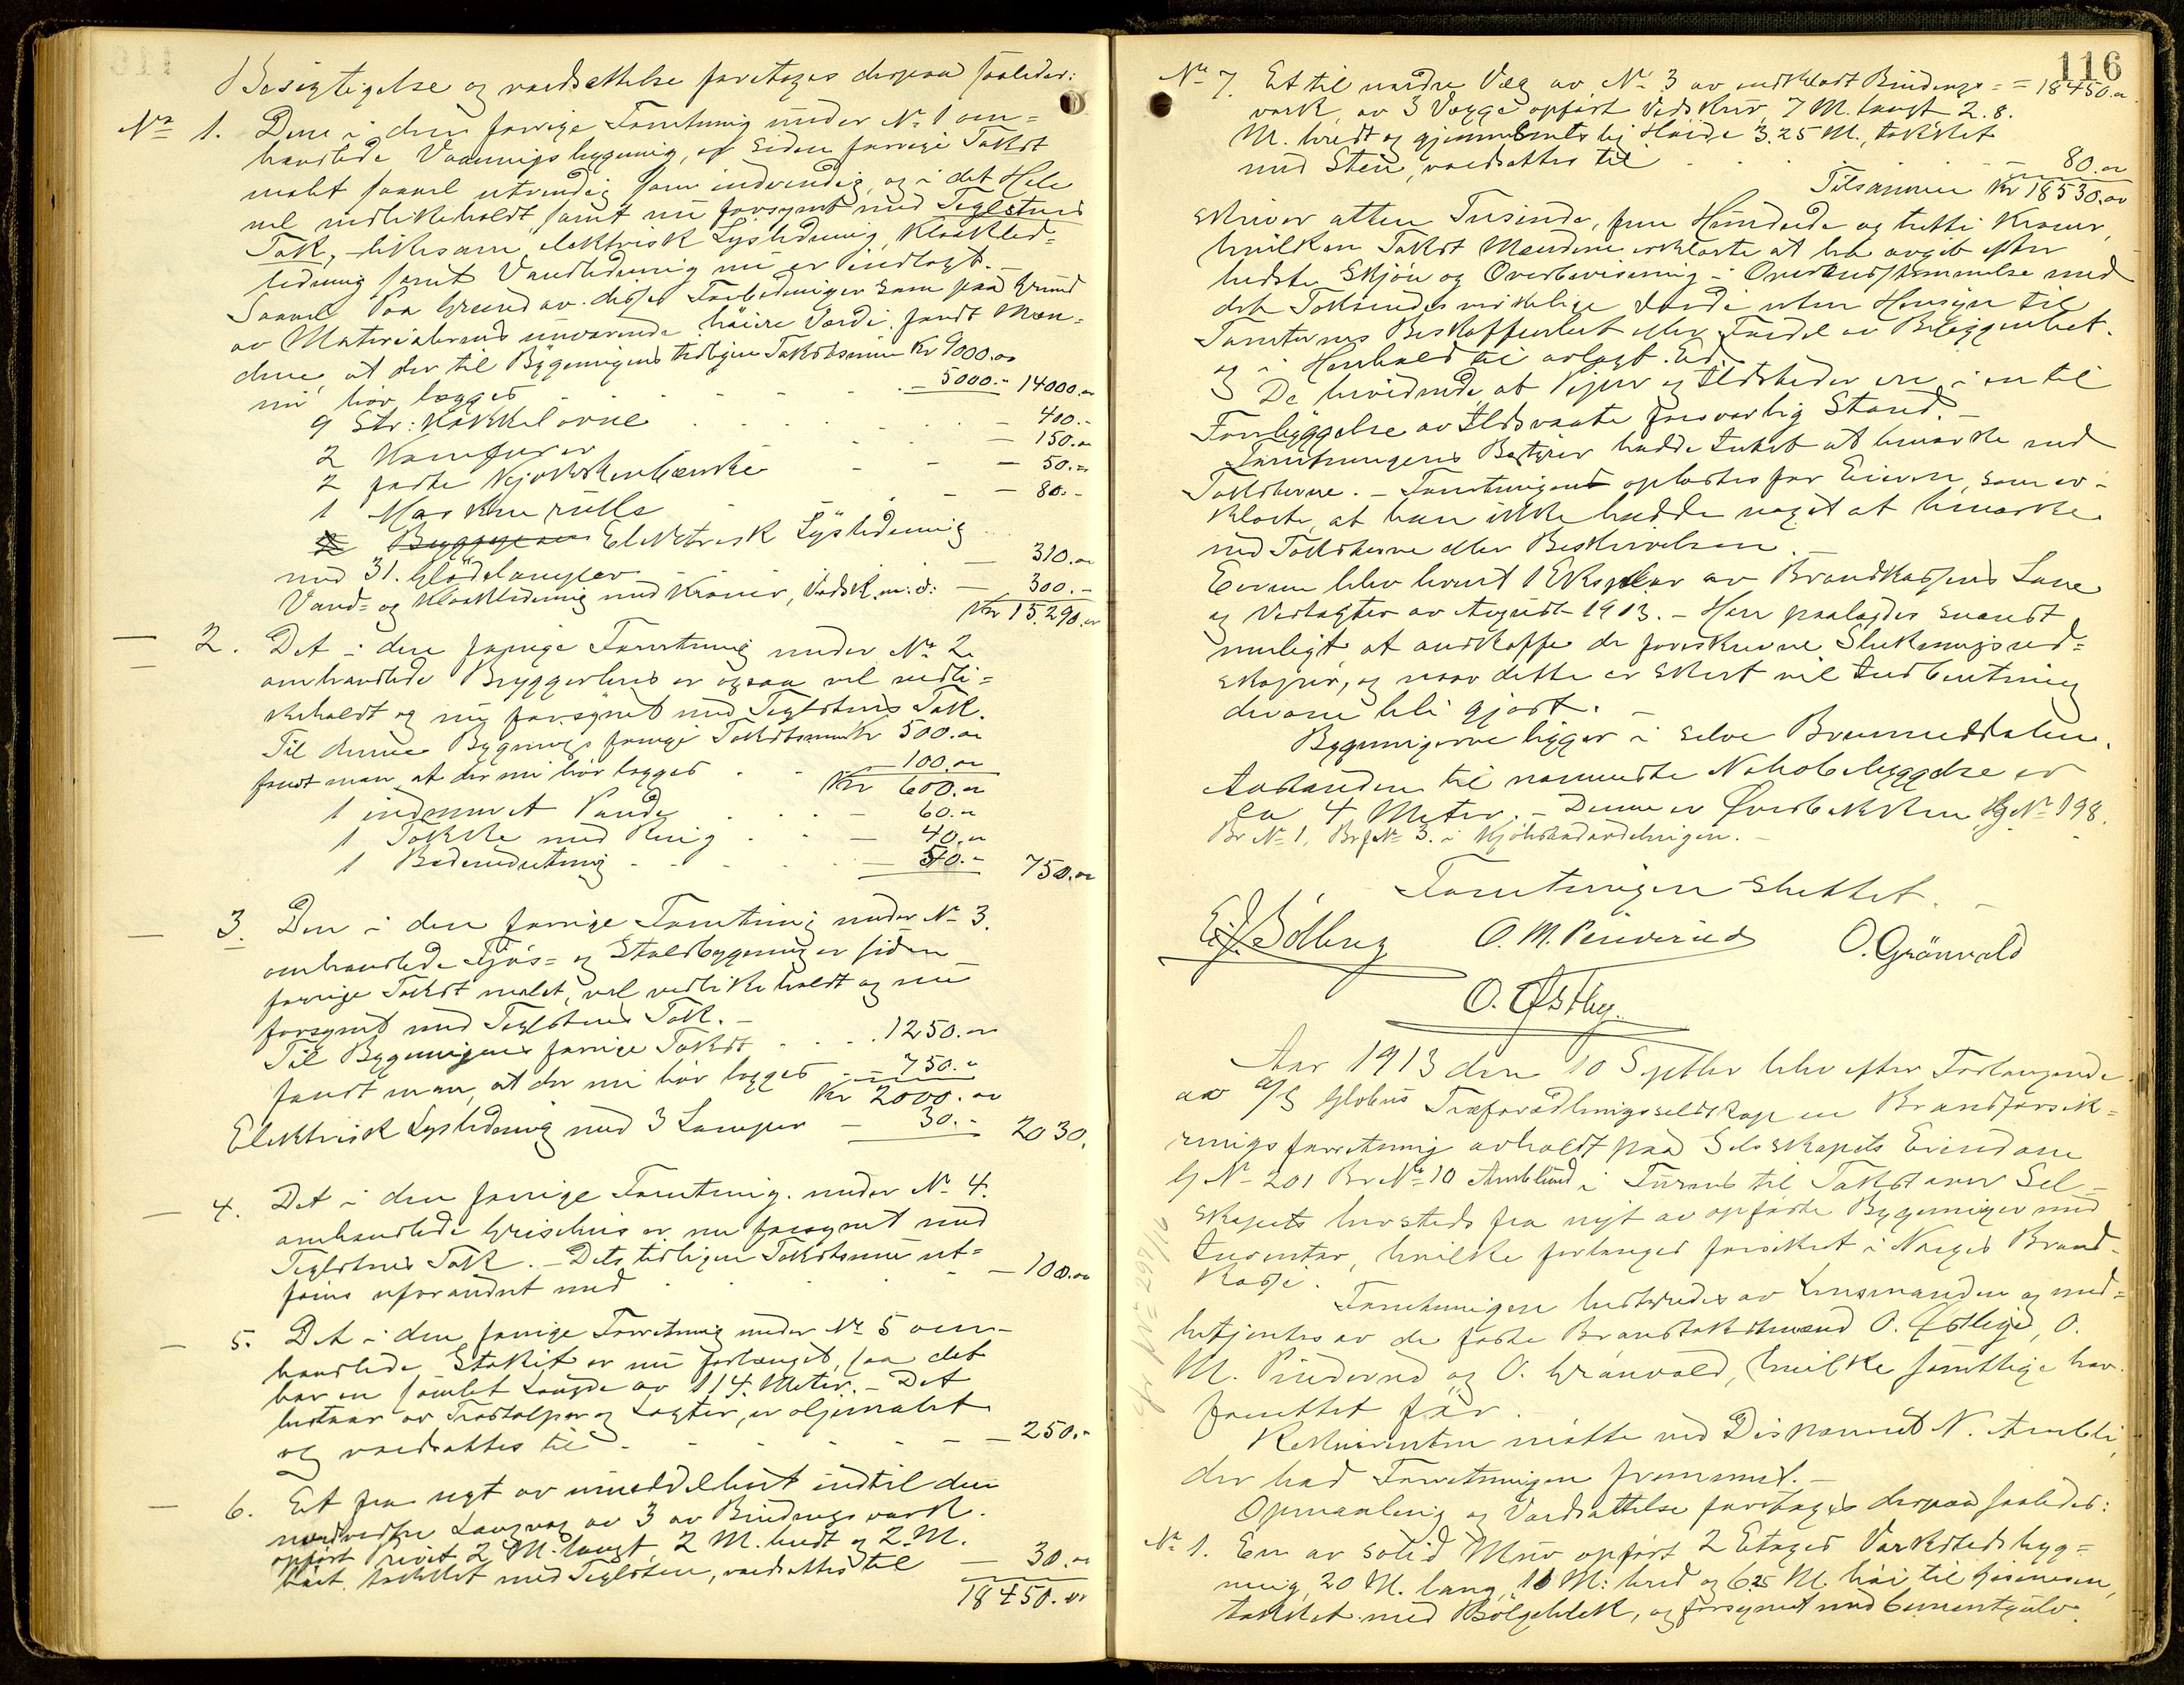 Besigtigelse og værdsættelse foretoges derpaa saaledes:
No 1. Den i den forrige Forretning under No 1 om=
handlede Vaaningsbygning, er siden forrige Takst
malt saavel utvendig som indvendig, og i det Hele
vel vedlikeholdt, samt nu forsynet med Teglstens
Tak, - likesom elektrisk Lysledning, Kloakled=
ledning samt Vandledning nu er indlagt. -
Saavel paa Grund av disse Forbedringer som paa Grund
av Materialernes nuværende høiere Værdi, fandt Mæn=
dene, at der til Bygningens tidligere Takstsum Kr 9000.00
nu bør lægges - 5000.- 14000.00
9 Str: Kakkelovne - 400.-
2 Komfurer - 150.00
2 faste Kjøkkenbænke - 50.00
1 Maskinrulle - 80.-
Elektrisk Lysledning
med 31. Glødelamper - 310.00
Vand- og Kloakledning med Kraner, Vadsk m. v: - 300.-
Kr 15.290.00
- 2. Det i den forrige Forretning under No 2
omhandlede Bryggerhus er ogsaa vel vedli=
keholdt og nu forsynet med Teglstens Tak.
Til denne Bygnings forrige Takstsum Kr 500.00
fandt man, at der nu bør lægges - 100.00
Kr 600.00
1 indmuret Pande - 60.00
1 Takke med Ring - 40.00
1 Badeindretning - 50.- 750.00
- 3. Den i den forrige Forretning under No 3.
omhandlede Fjøs= og Staldbygning er siden
forrige Takst malet, vel vedlikeholdt og nu
forsynet med Teglstens Tak. -
Til Bygningens forrige Takst . . . . 1250.00
fandt man, at der nu bør lægges - 750.00
Kr 2000.00
Elektrisk Lysledning med 3 Lamper - 30.- 2030.
- 4. Det i den forrige Forretning under No 4.
omhandlede Grisehus er nu forsynet med
Teglstens Tak. - Dets tidligere Takstsum ut=
føres uforandret med - 100.00
- 5. Det i den forrige Forretning under No 5 om-
handlede Stakit er nu forlænget, saa det
har en samlet Længde av 114. Meter. - Det
bestaar av Træstolper og Lægter, er oljemalet
og værdsættes til - 250.-
- 6. Et fra nyt av umiddelbart indtil den
nordvestre Langvæg av 3 av Bindingsværk
opført Privet, 2 M. langt, 2 M. bredt og 2 M.
høit, tækket med Teglsten, værdsættes til - 30.00
18450.00
116
No 7. Et til nordre Væg av No 3 av bordklædt Bindings= = 18450.00
værk, av 3 Vægge opført Vedskur, 7 M. langt 2.8.
M. bredt og gjennemsnitslig Høide 3.25 M., tækket
med Sten, værdsættes til - 80.00
Tilsammen Kr 18530.00
skriver atten Tusinde, fem Hundrede og tretti Kroner,
hvilken Takst Mændene erklærte at ha avgit efter
bedste Skjøn og Overbevisning i Overensstemmelse med
det Takseredes virkelige Værdi uten Hensyn til
Tomternes Beskaffenhet eller Fordel av Beliggenhet.
og i Henhold til avlagt Ed.
De bevidnede, at Piper og Ildsteder ere i en til
Forebyggelse av Ildsvaade forsvarlig Stand. -
Forretningens Bestyrer hadde Intet at bemærke ved
Taksterne. - Forretningen oplæstes for Eieren, som er-
klærte, at han ikke hadde noget at bemærke
ved Taksterne eller Beskrivelsen. -
Eieren blev levert 1 Eksplar av Brandkassens Love
og Vedtægter av August 1913. - Han paalagdes snarest
muligt at anskaffe de foreskrevne Slukningsred=
skaper, og naar dette er skeet vil Indberetning
derom bli gjort. -
Bygningerne ligger i selve Brummunddalen.
Avstanden til nærmeste Nabobebyggelse er
ca 4 Meter. - Denne er Øverbakken G No 198.
Br No 1, Brf No 3. i Kjøbstadavdelingen. -
Forretningen sluttet. -
Ed. Solberg O. M. Pinderud O. Grønvold
O. Østby.
Aar 1913 den 10 Septbr blev efter Forlangende
av A/S Globus Træforædlingsselskap en Brandforsik=
ringsforretning avholdt paa Selskapets Eiendom
G No 201 Br No 10 Amblund i Furnes til Takst over Sel-
skapets hersteds fra nyt av opførte Bygninger med
Inventar, hvilke forlanges forsikret i Norges Brand-
kasse.
Forretningen bestyredes av Lensmanden og med=
betjentes av de faste Brandtakstmænd O. Østby, O.
M. Pinderud og O. Grønvold, hvilke samtlige har
forrettet før.
Rekvirenten møtte ved Disponent N. Amble,
der bad Forretningen fremmet. -
Opmaaling og Værdsættelse foretoges derpaa saaledes:
No 1. En av solid Mur opført 2 Etages Verkstedsbyg=
ning, 20 M. lang, 10 M: bred og 6.25 M. høi til Gesimsen,
tækket med Bølgeblek, og forsynet med Cementgulv.